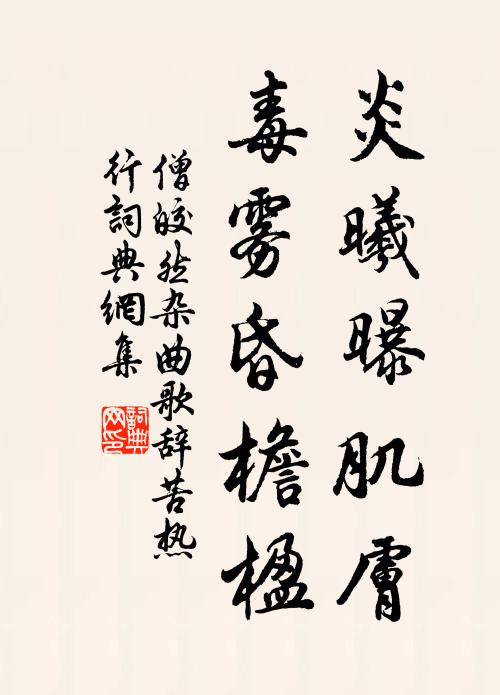 炎曦曝肌膚
毒雾昏檐楹
僧皎然杂曲歌辞苦热
行詞典網集
詞典
网印